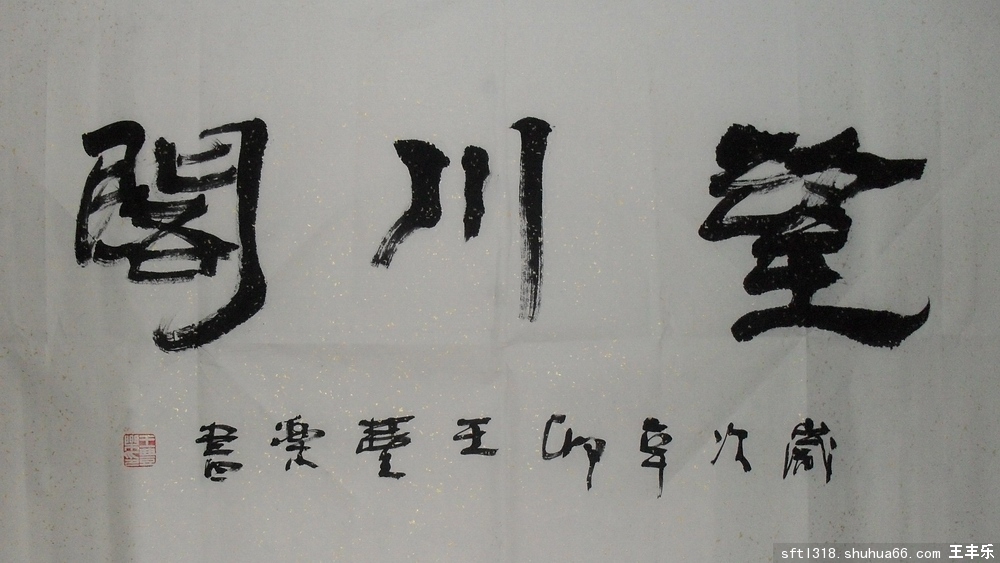 望川閣
歲次辛卯王豐樂書
sftl318.shuhua66.com 王丰乐